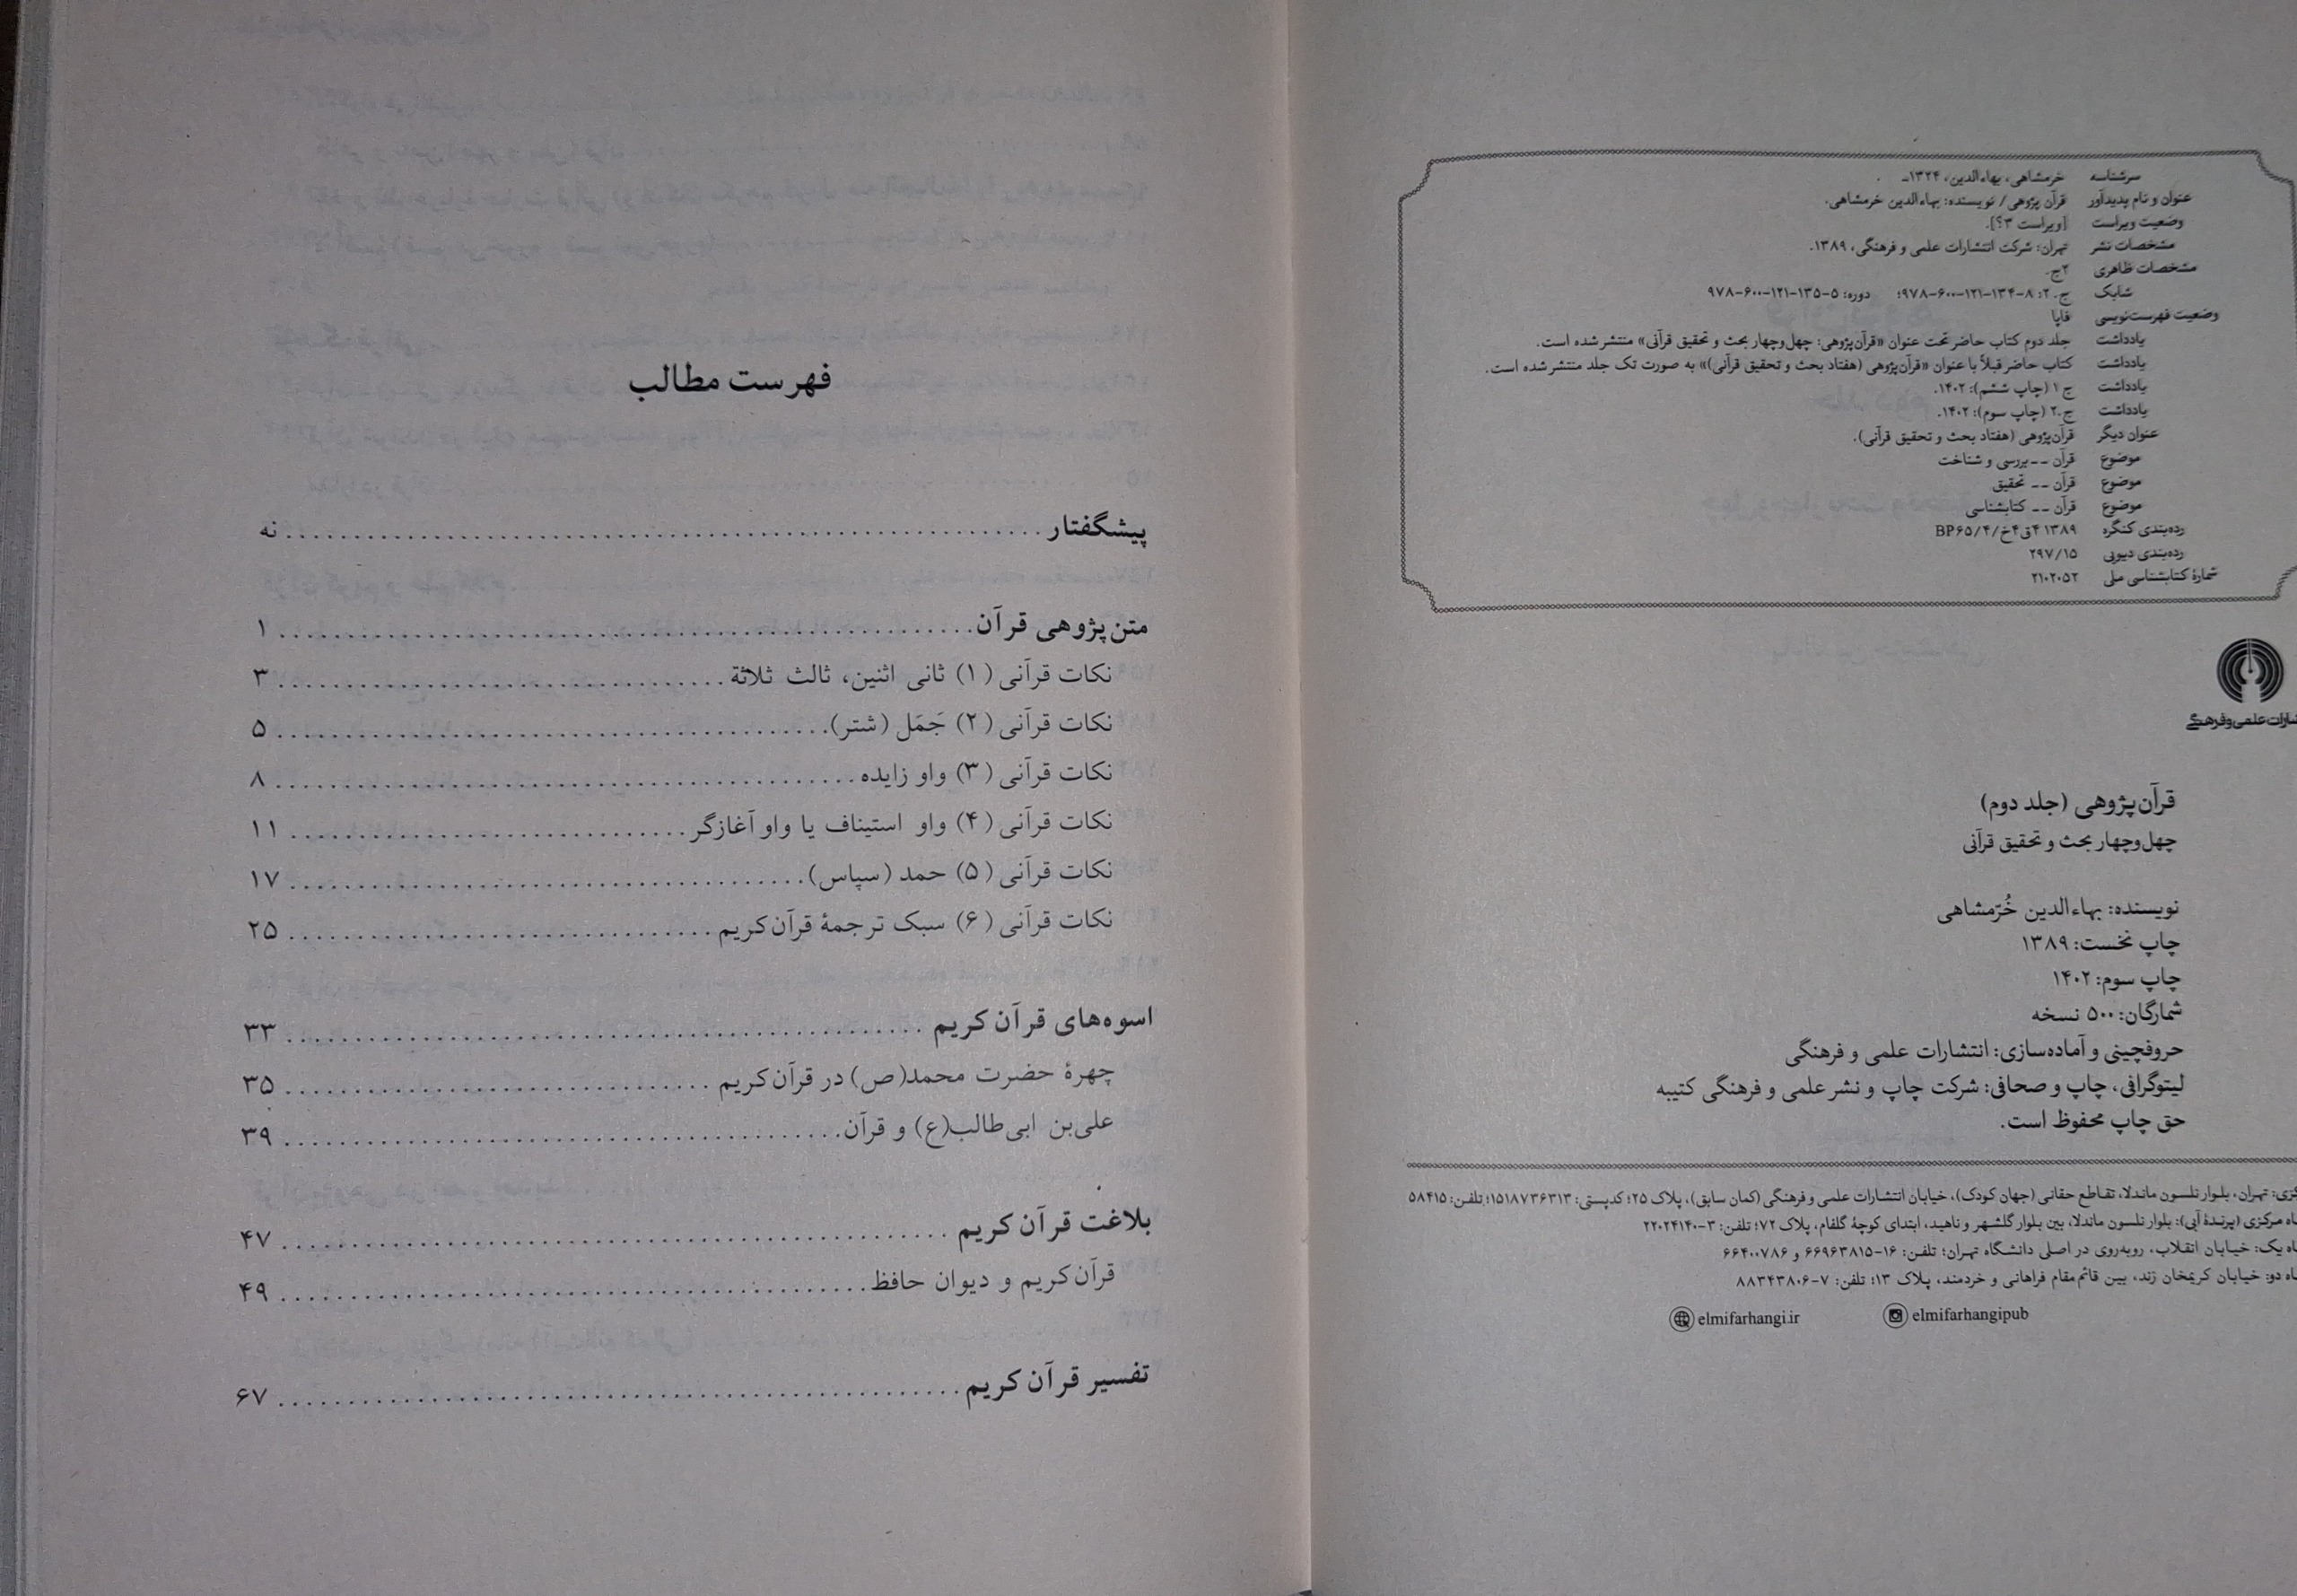 سرشناسه خرمشاهی، بهاءالدین، ۱۳۲۴ـ .
عنوان و نام پدیدآور قرآن پژوهی/ نویسنده: بهاءالدین خرمشاهی.
وضعیت ویراست [ویراست ۳؟].
مشخصات نشر تهران: شرکت انتشارات علمی و فرهنگی، ۱۳۸۹.
مشخصات ظاهری ۲ج.
شابک ج. ۲: ۸-۱۳۴-۱۲۱-۶۰۰-۹۷۸؛ دوره: ۵-۱۳۵-۱۲۱-۶۰۰-۹۷۸
وضعیت فهرست‌نویسی فاپا
یادداشت جلد دوم کتاب حاضر تحت عنوان «قرآن‌پژوهی: چهل‌وچهار بحث و تحقیق قرآنی» منتشر شده است.
یادداشت کتاب حاضر قبلاً با عنوان «قرآن‌پژوهی (هفتاد بحث و تحقیق قرآنی)» به صورت تک جلد منتشر شده است.
یادداشت ج ۱ (چاپ ششم): ۱۴۰۲.
یادداشت ج.۲ (چاپ سوم): ۱۴۰۲.
عنوان دیگر قرآن‌پژوهی (هفتاد بحث و تحقیق قرآنی).
موضوع قرآن -- بررسی و شناخت
موضوع قرآن -- تحقیق
موضوع قرآن -- کتابشناسی
رده‌بندی کنگره ۱۳۸۹ ۴ق۴خ/BP۶۵/۴
رده‌بندی دیویی ۲۹۷/۱۵
شمارهٔ کتابشناسی ملی ۲۱۰۲۰۵۲
علمی و فرهنگی
قرآن‌پژوهی (جلد دوم)
چهل‌وچهار بحث و تحقیق قرآنی
نویسنده: بهاءالدین خُرّمشاهی
چاپ نخست: ۱۳۸۹
چاپ سوم: ۱۴۰۲
شمارگان: ۵۰۰ نسخه
حروفچینی و آماده‌سازی: انتشارات علمی و فرهنگی
لیتوگرافی، چاپ و صحافی: شرکت چاپ و نشر علمی و فرهنگی کتیبه
حق چاپ محفوظ است.
تهران، بلوار نلسون ماندلا، تقاطع حقانی (جهان کودک)، خیابان انتشارات علمی و فرهنگی (کمان سابق)، پلاک ۲۵؛ کدپستی: ۱۵۱۸۷۳۶۳۱۳؛ تلفن: ۵۸۴۱۵
مرکزی (پرندهٔ آبی): بلوار نلسون ماندلا، بین بلوار گلشهر و ناهید، ابتدای کوچهٔ گلفام، پلاک ۷۲؛ تلفن: ۳-۲۲۰۲۴۱۴۰
یک: خیابان انقلاب، روبه‌روی در اصلی دانشگاه تهران؛ تلفن: ۱۶-۶۶۹۶۳۸۱۵ و ۶۶۴۰۰۷۸۶
دو: خیابان کریمخان زند، بین قائم‌مقام فراهانی و خردمند، پلاک ۱۳؛ تلفن: ۷-۸۸۳۴۳۸۰۶
elmifarhangi.ir elmifarhangipub
فهرست مطالب
پیشگفتار ........ نه
متن‌پژوهی قرآن ........ ۱
نکات قرآنی (۱) ثانی اثنین، ثالث ثلاثة ........ ۳
نکات قرآنی (۲) جَمَل (شتر) ........ ۵
نکات قرآنی (۳) واو زایده ........ ۸
نکات قرآنی (۴) واو استیناف یا واو آغازگر ........ ۱۱
نکات قرآنی (۵) حمد (سپاس) ........ ۱۷
نکات قرآنی (۶) سبک ترجمهٔ قرآن‌کریم ........ ۲۵
اسوه‌های قرآن‌کریم ........ ۳۳
چهرهٔ حضرت محمد(ص) در قرآن‌کریم ........ ۳۵
علی‌بن ابی‌طالب(ع) و قرآن ........ ۳۹
بلاغت قرآن‌کریم ........ ۴۷
قرآن‌کریم و دیوان حافظ ........ ۴۹
تفسیر قرآن‌کریم ........ ۶۷